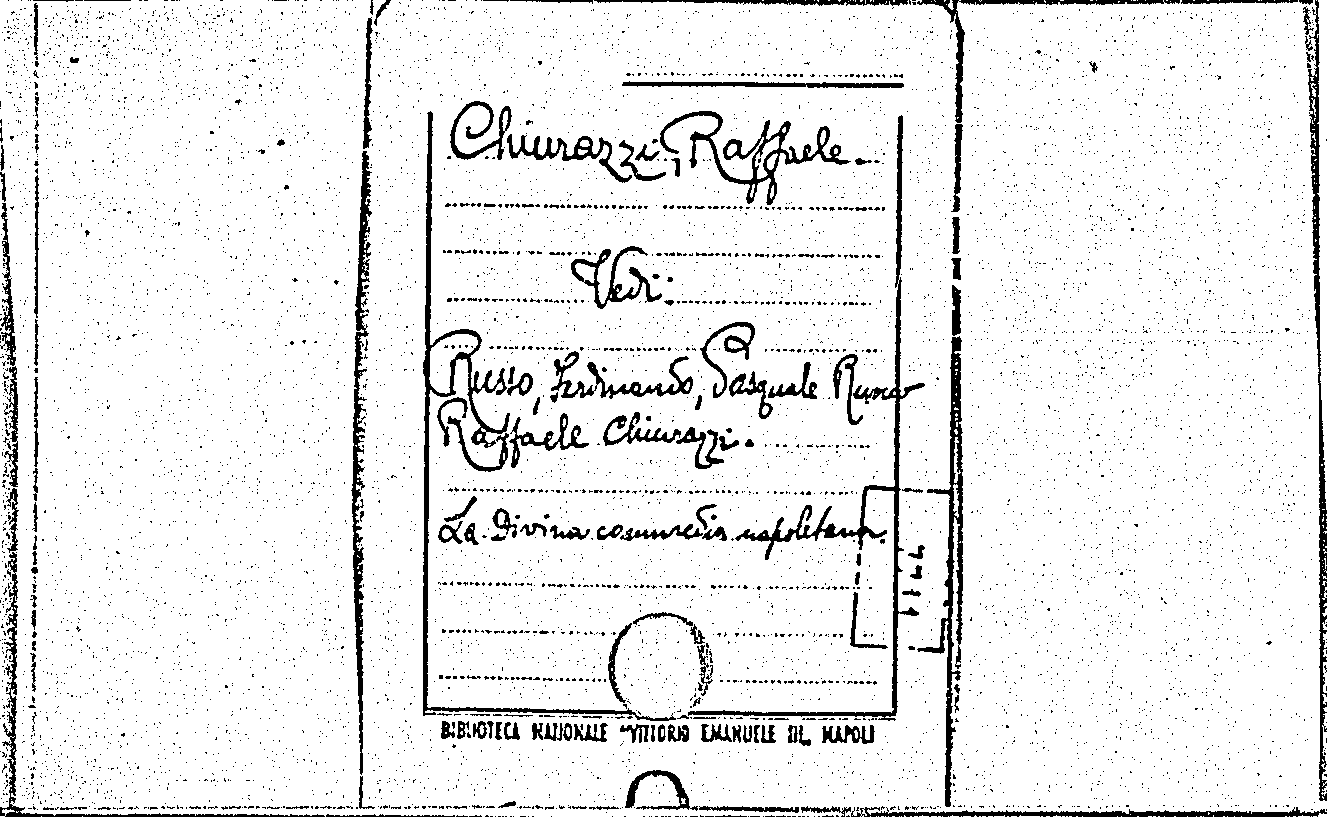 Chiurazzi, Raffaele.
Vedi:
Russo, Ferdinando, Pasquale Ruocco
Raffaele Chiurazzi.
La Divina commedia napoletana.
BIBLIOTECA NAZIONALE "VITTORIO EMANUELE III„ NAPOLI